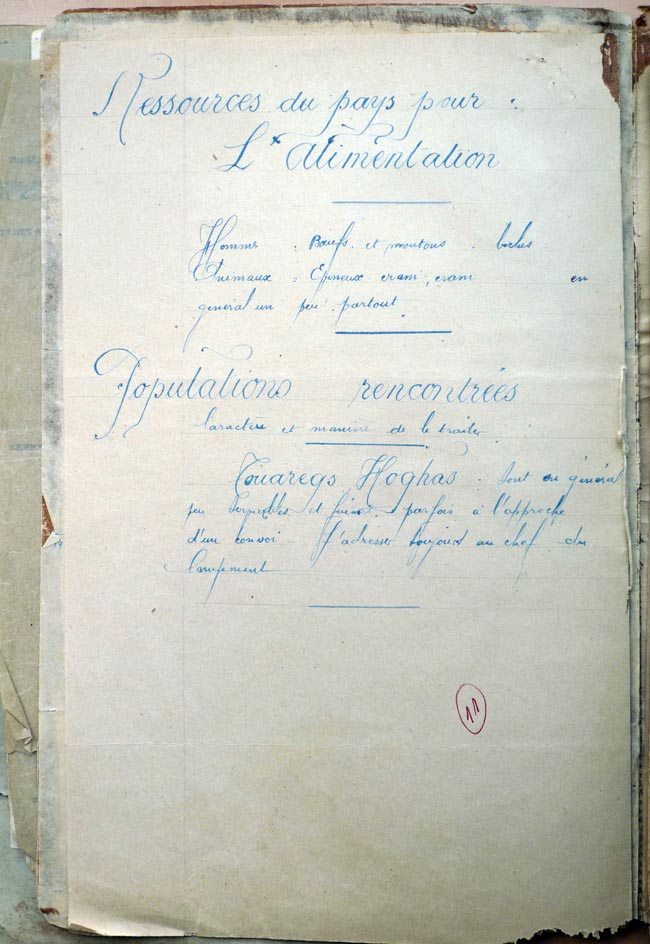 Ressources du pays pour :
L'Alimentation
Homme : Bœufs et moutons. biches
Animaux : Epineux cram, cram en
général un peu partout.
Populations rencontrées
Caractère et manière de le traiter
Touaregs Hoghas. Sont en général
peu et parfois à l'approche
d'un convoi - S'adresser toujours au chef du
Campement
11